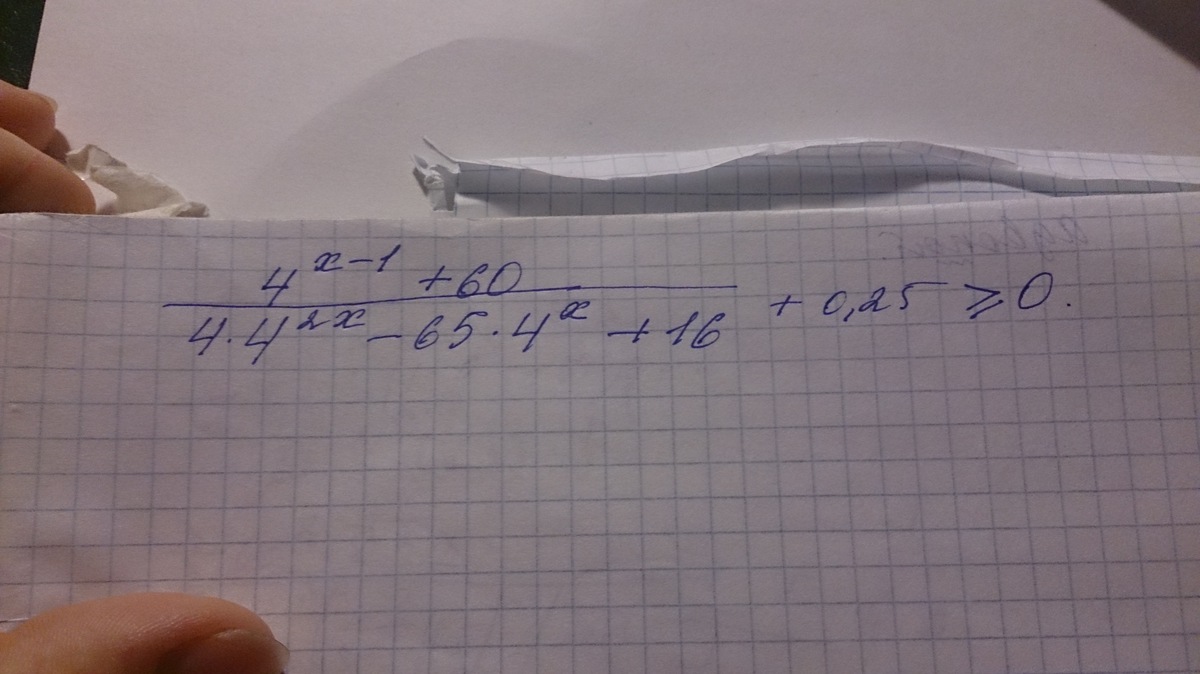 4^{x-1} + 60
4·4^{2x} - 65·4^x + 16 + 0,25 ⩾ 0.